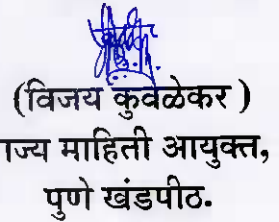 (विजय कुवळेकर )
ाज्य माहिती आयुक्त,
पुणे खंडपीठ.